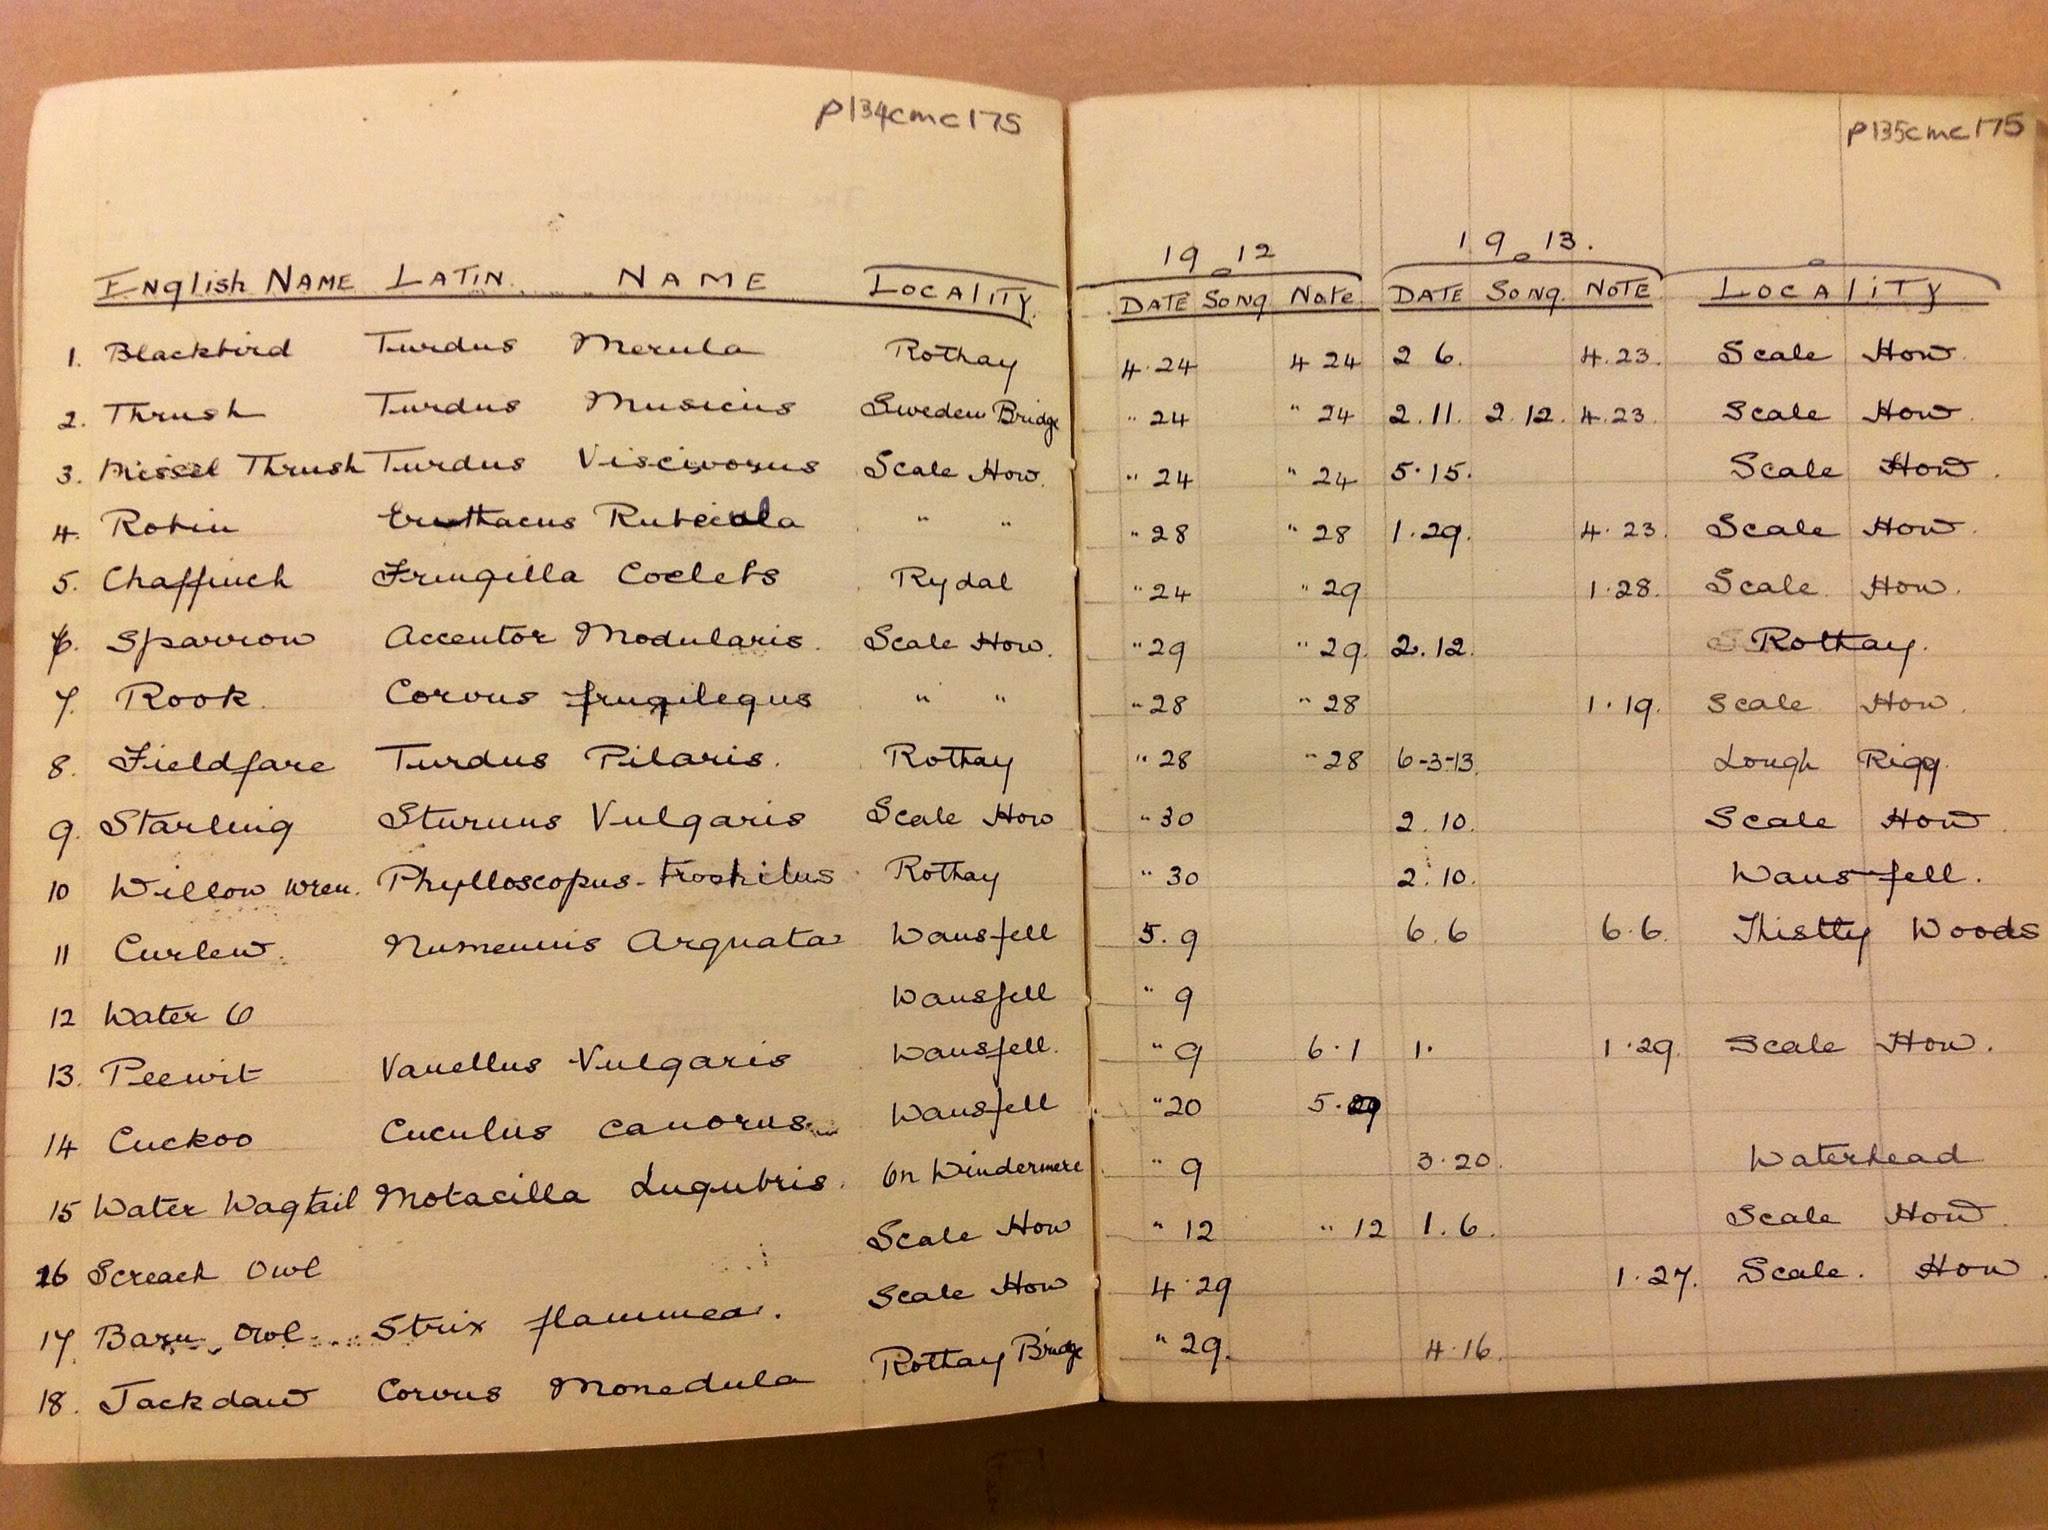 p134cmc175
English Name Latin Name Locality
1. Blackbird Turdus Merula Rothay
2. Thrush Turdus Musicus Sweden Bridge
3. Missel Thrush Turdus Viscivorus Scale How.
4. Robin Erithacus Rubecola " "
5. Chaffinch Fringilla Coelebs Rydal
6. Sparrow Accentor Modularis. Scale How.
7. Rook. Corvus frugilegus " "
8. Fieldfare Turdus Pilaris. Rothay
9. Starling Sturnus Vulgaris Scale How
10 Willow Wren. Phylloscopus-trochilus Rothay
11 Curlew. Numenius Arquata Wansfell
12 Water Wansfell
13. Peewit Vanellus Vulgaris Wansfell.
14 Cuckoo Cuculus canorus Wansfell
15 Water Wagtail Motacilla Lugubris. On Windermere
16 Screach Owl Scale How
17 Barn Owl Strix flammea. Scale How
18. Jackdaw Corvus Monedula Rothay Bridge
p135cmc175
1912 1913.
Date Song Note Date Song. Note Locality
4.24 4 24 2 6. 4.23. Scale How.
" 24 " 24 2.11. 2.12. 4.23. Scale How.
" 24 " 24 5.15. Scale How.
" 28 " 28 1.29. 4.23. Scale How.
" 24 " 29 1.28. Scale How.
" 29 " 29. 2.12. Rothay.
" 28 " 28 1.19. Scale How.
" 28 " 28 6-3-13. Lough Rigg.
" 30 2.10. Scale How.
" 30 2.10. Wansfell.
5.9 6.6 6.6. Woods
" 9
" 9 6.1 1. 1.29. Scale How.
" 20 5.
" 9 3.20. Waterhead
" 12 " 12 1.6. Scale How.
4.29 1.27. Scale. How.
" 29. 4.16.